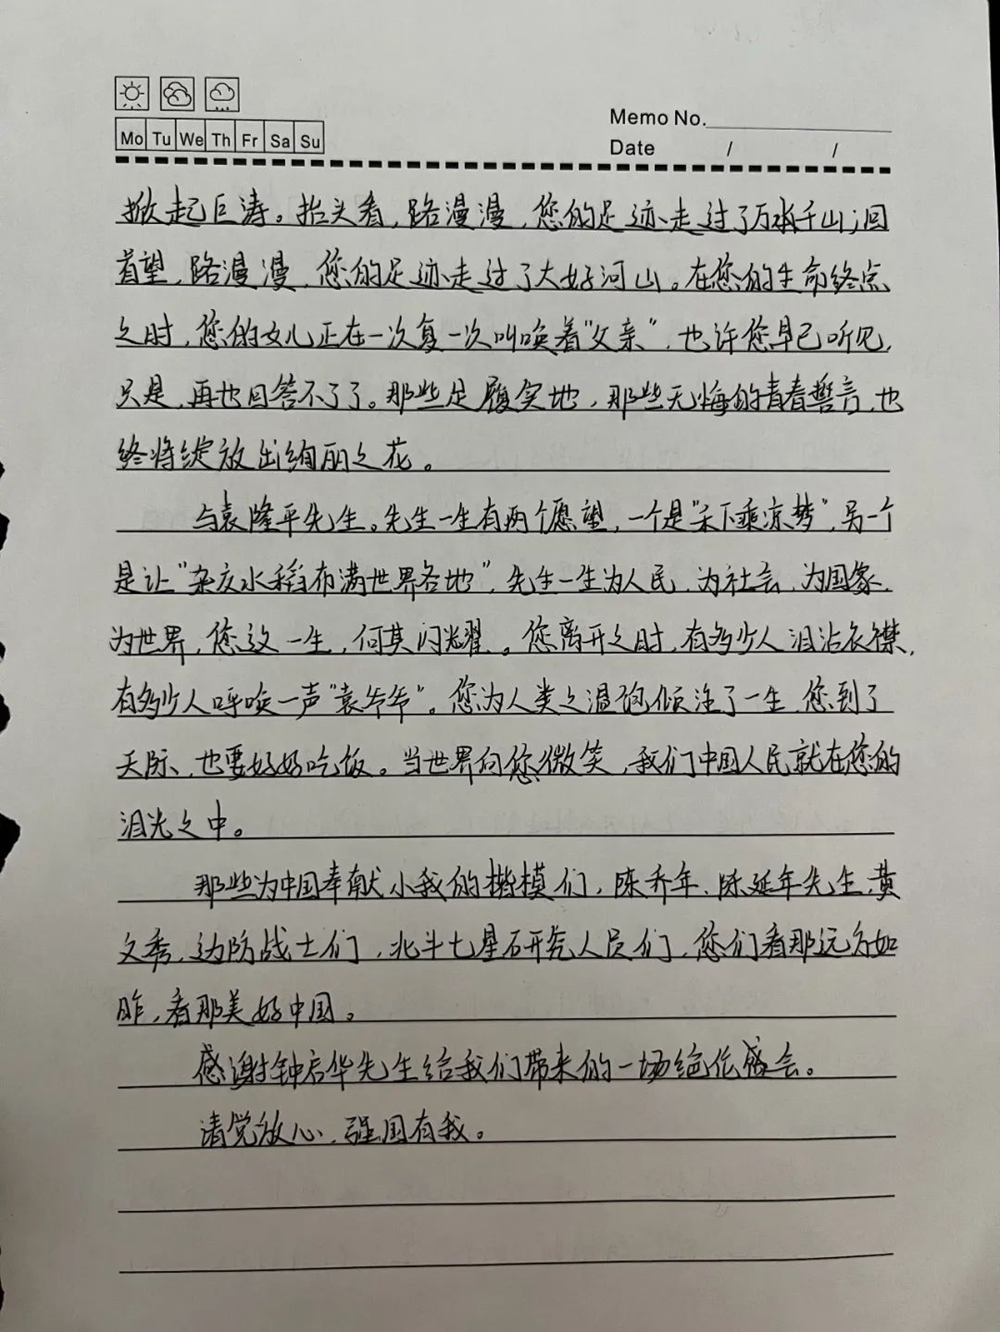 Mo Tu We Th Fr Sa Su
Memo No.
Date / /
掀起巨涛。抬头看,路漫漫,您的足迹走过了万水千山;回
首望,路漫漫,您的足迹走过了大好河山。在您的生命终点
之时,您的女儿正在一次复一次叫唤着“父亲”,也许您早已听见,
只是,再也回答不了了。那些足履实地,那些无悔的青春誓言,也
终将绽放出绚丽之花。
与袁隆平先生。先生一生有两个愿望,一个是“禾下乘凉梦”,另一个
是让“杂交水稻布满世界各地”,先生一生为人民,为社会,为国家,
为世界,您这一生,何其闪耀。您离开之时,有多少人泪沾衣襟,
有多少人呼唤一声“袁爷爷”。您为人类之温饱倾注了一生,您到了
天际,也要好好吃饭。当世界向您微笑,我们中国人民就在您的
泪光之中。
那些为中国奉献小我的楷模们,陈乔年、陈延年先生,黄
文秀,边防战士们,北斗七星研究人员们,您们看那远方如
昨,看那美好中国。
感谢钟启华先生给我们带来的一场绝伦盛会。
请党放心,强国有我。